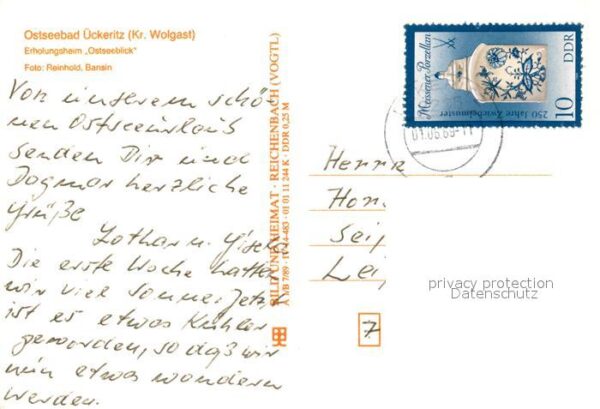 Ostseebad Ückeritz (Kr. Wolgast)
Erholungsheim „Ostseeblick"
Foto: Reinhold, Bansin
Von unserem schö-
nen Ostseeurlaub
senden Dir und
Dagmar herzliche
Grüße
Lothar u. Gisela
Die erste Woche hatten
wir viel Sonne, jetzt
ist es etwas kühler
geworden, so daß wir
nun etwas wandern
werden.
BILD UND HEIMAT · REICHENBACH (VOGTL)
01 01 11 244 K · DDR 0,25 M
Meissener Porzellan
250 Jahre Zwiebelmuster
10 DDR
Herrn
Hor
Sei
Lei
7
privacy protection
Datenschutz